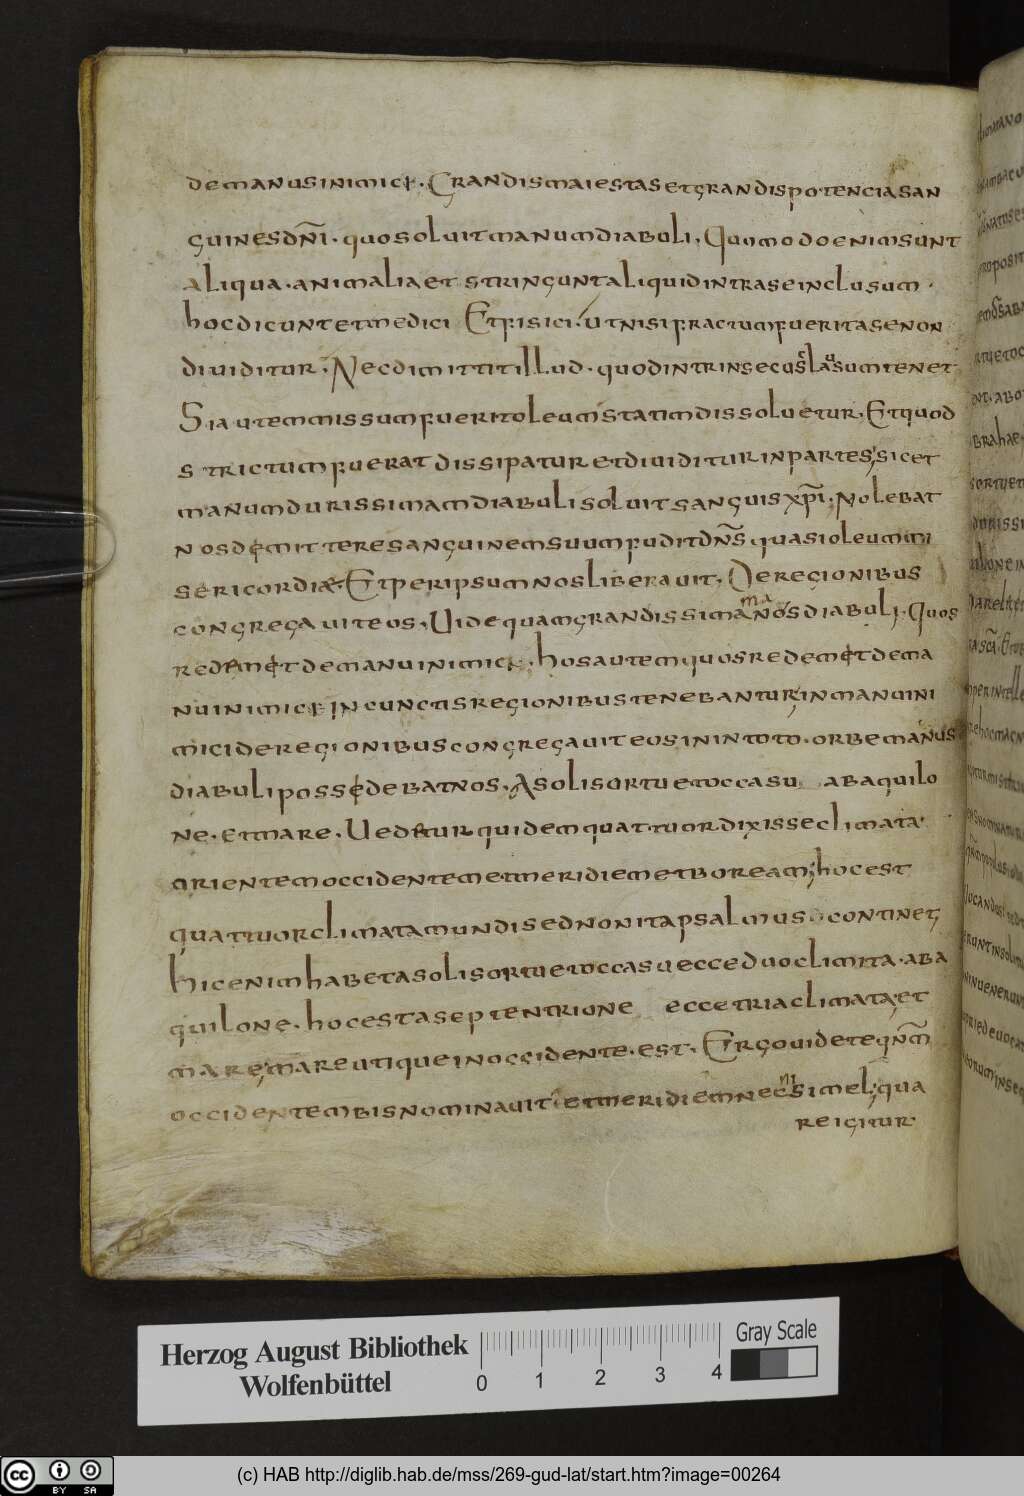 de manus inimici. Grandis maiestas et grandis potencia san
guines dñi. quo soluit manum diabuli, Quomodo enim sunt
aliqua. animalia et stringunt aliquid intra se inclusum.
hoc dicunt et medici Et fisici. ut nisi fractum fuerit ase non
diuiditur, Nec dimittit illud. quod intrinsecus clausum tenet
Si autem missum fuerit oleum statim dissoluetur, Et quod
strictum fuerat dissipatur et diuiditur in partes, sic et
manum durissimam diabuli soluit sanguis xp̄i, Nolebat
nos demittere sanguinem suum fudit dñs quasi oleum mi
sericordiae, Et per ipsum nos liberauit, De regionibus
congregauit eos, Uide quam grandissima manos diabuli. Quos
redemet de manu inimici, hos autem quos redemet de ma
nu inimici in cunctis regionibus tenebantur, in manu ini
mici de regionibus congregauit eos in in toto. orbe manus
diabuli possedebat nos, A solis ortu et occasu ab aquilo
ne. et mare, Uedetur quidem quattuor dixisse climata
orientem occidentem et meridiem et boream; hoc est
quattuor climata mundi sed non ita psalmus continet
hic enim habet a solis ortu et occasu ecce duo climita. ab a
quilone. hoc est a septentrione ecce tria climata, et
mare, mare utique in occidente. est, Ergo uidete qñm
occidentem bis nominauit et meridiem nec semel; qua
re igitur
Herzog August Bibliothek
Wolfenbüttel
0 1 2 3 4
Gray Scale
cc BY SA
(c) HAB http://diglib.hab.de/mss/269-gud-lat/start.htm?image=00264